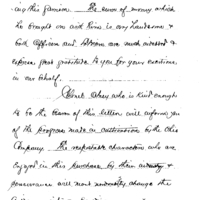 ing this Garrison. The sum of money which
he brought on with him is very handsome &
both Officers and Soldiers are much obliged &
express great gratitude to you for your exertions
in our behalf.
Colonel who is kind enough
to be the bearer of this letter will inform you
of the progress made in by the Ohio
Company. The respectable characters who are
engaged in this purchase by their industry &
perseverance will most change the